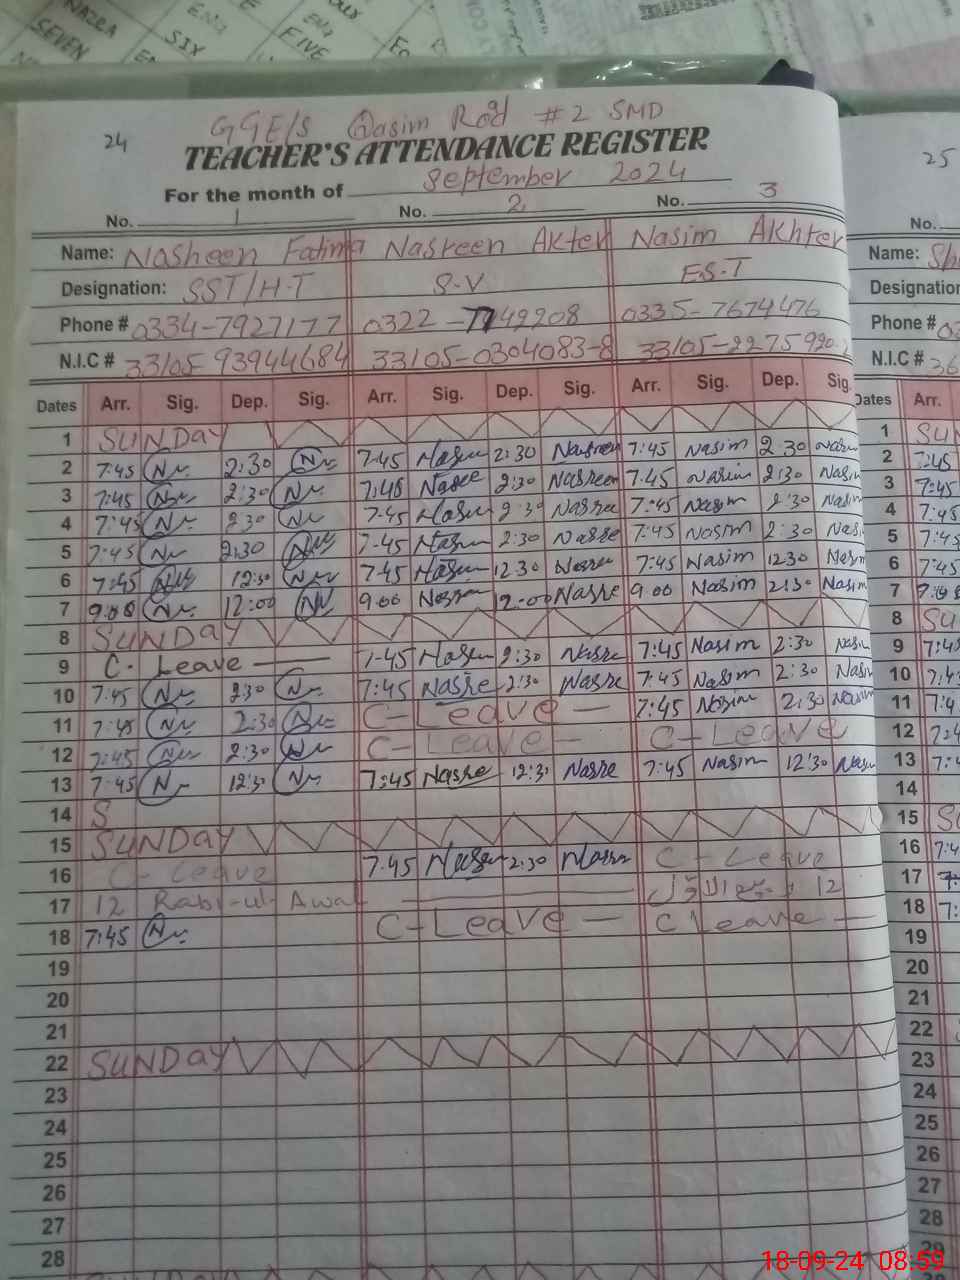 NAZRA ENG ENG
SEVEN SIX FIVE
GGE/S Qasim Rod #2 SMD
24 TEACHER'S ATTENDANCE REGISTER 25
For the month of September 2024
No. 1 No. 2 No. 3 No.
Name: Nosheen Fatima Nasreen Akter Nasim Akhter Name: Sh
Designation: SST/H.T S.V E.S.T Designation
Phone # 0334-7927177 0322-7749908 0335-7674476 Phone # 03
N.I.C # 33105-93944684 33105-0304083-8 33105-2275920 N.I.C # 36
Dates Arr. Sig. Dep. Sig. Arr. Sig. Dep. Sig. Arr. Sig. Dep. Sig. Dates Arr.
1 SUNDAY 1 SUN
2 7:45 2:30 7:45 2:30 Nasreen 7:45 Nasim 2:30 Nasim 2 7:45
3 7:45 2:30 7:45 Nasre 2:30 Nasreen 7:45 Nasim 2:30 Nasim 3 7:45
4 7:45 2:30 7:45 2:30 Nasre 7:45 Nasim 2:30 Nasim 4 7:45
5 7:45 2:30 7:45 2:30 Nasre 7:45 Nasim 2:30 Nas 5 7:45
6 7:45 12:30 7:45 12:30 Nasre 7:45 Nasim 12:30 Nasim 6 7:45
7 9:00 12:00 9:00 12:00 Nasre 9:00 Nasim 2:30 Nasim 7
8 SUNDAY 8 SU
9 C-Leave 7:45 2:30 Nasre 7:45 Nasim 2:30 Nasim 9 7:45
10 7:45 2:30 7:45 Nasre 2:30 Nasre 7:45 Nasim 2:30 Nasim 10 7:4
11 7:45 2:30 C-Leave 7:45 Nasim 2:30 Nasim 11 7:4
12 7:45 2:30 C-Leave C-Leave 12 7:4
13 7:45 12:30 7:45 Nasre 12:30 Nasre 7:45 Nasim 12:30 Nasim 13 7:4
14 S 14
15 SUNDAY 15 SU
16 C-Leave 7:45 2:30 C-Leave 16 7:4
17 12 Rabi-ul-Awal 12 ربیع الاول 17
18 7:45 C-Leave C Leave 18 7:
19 19
20 20
21 21
22 SUNDAY 22
23 23
24 24
25 25
26 26
27 27
28 28
29
18-09-24 08:59